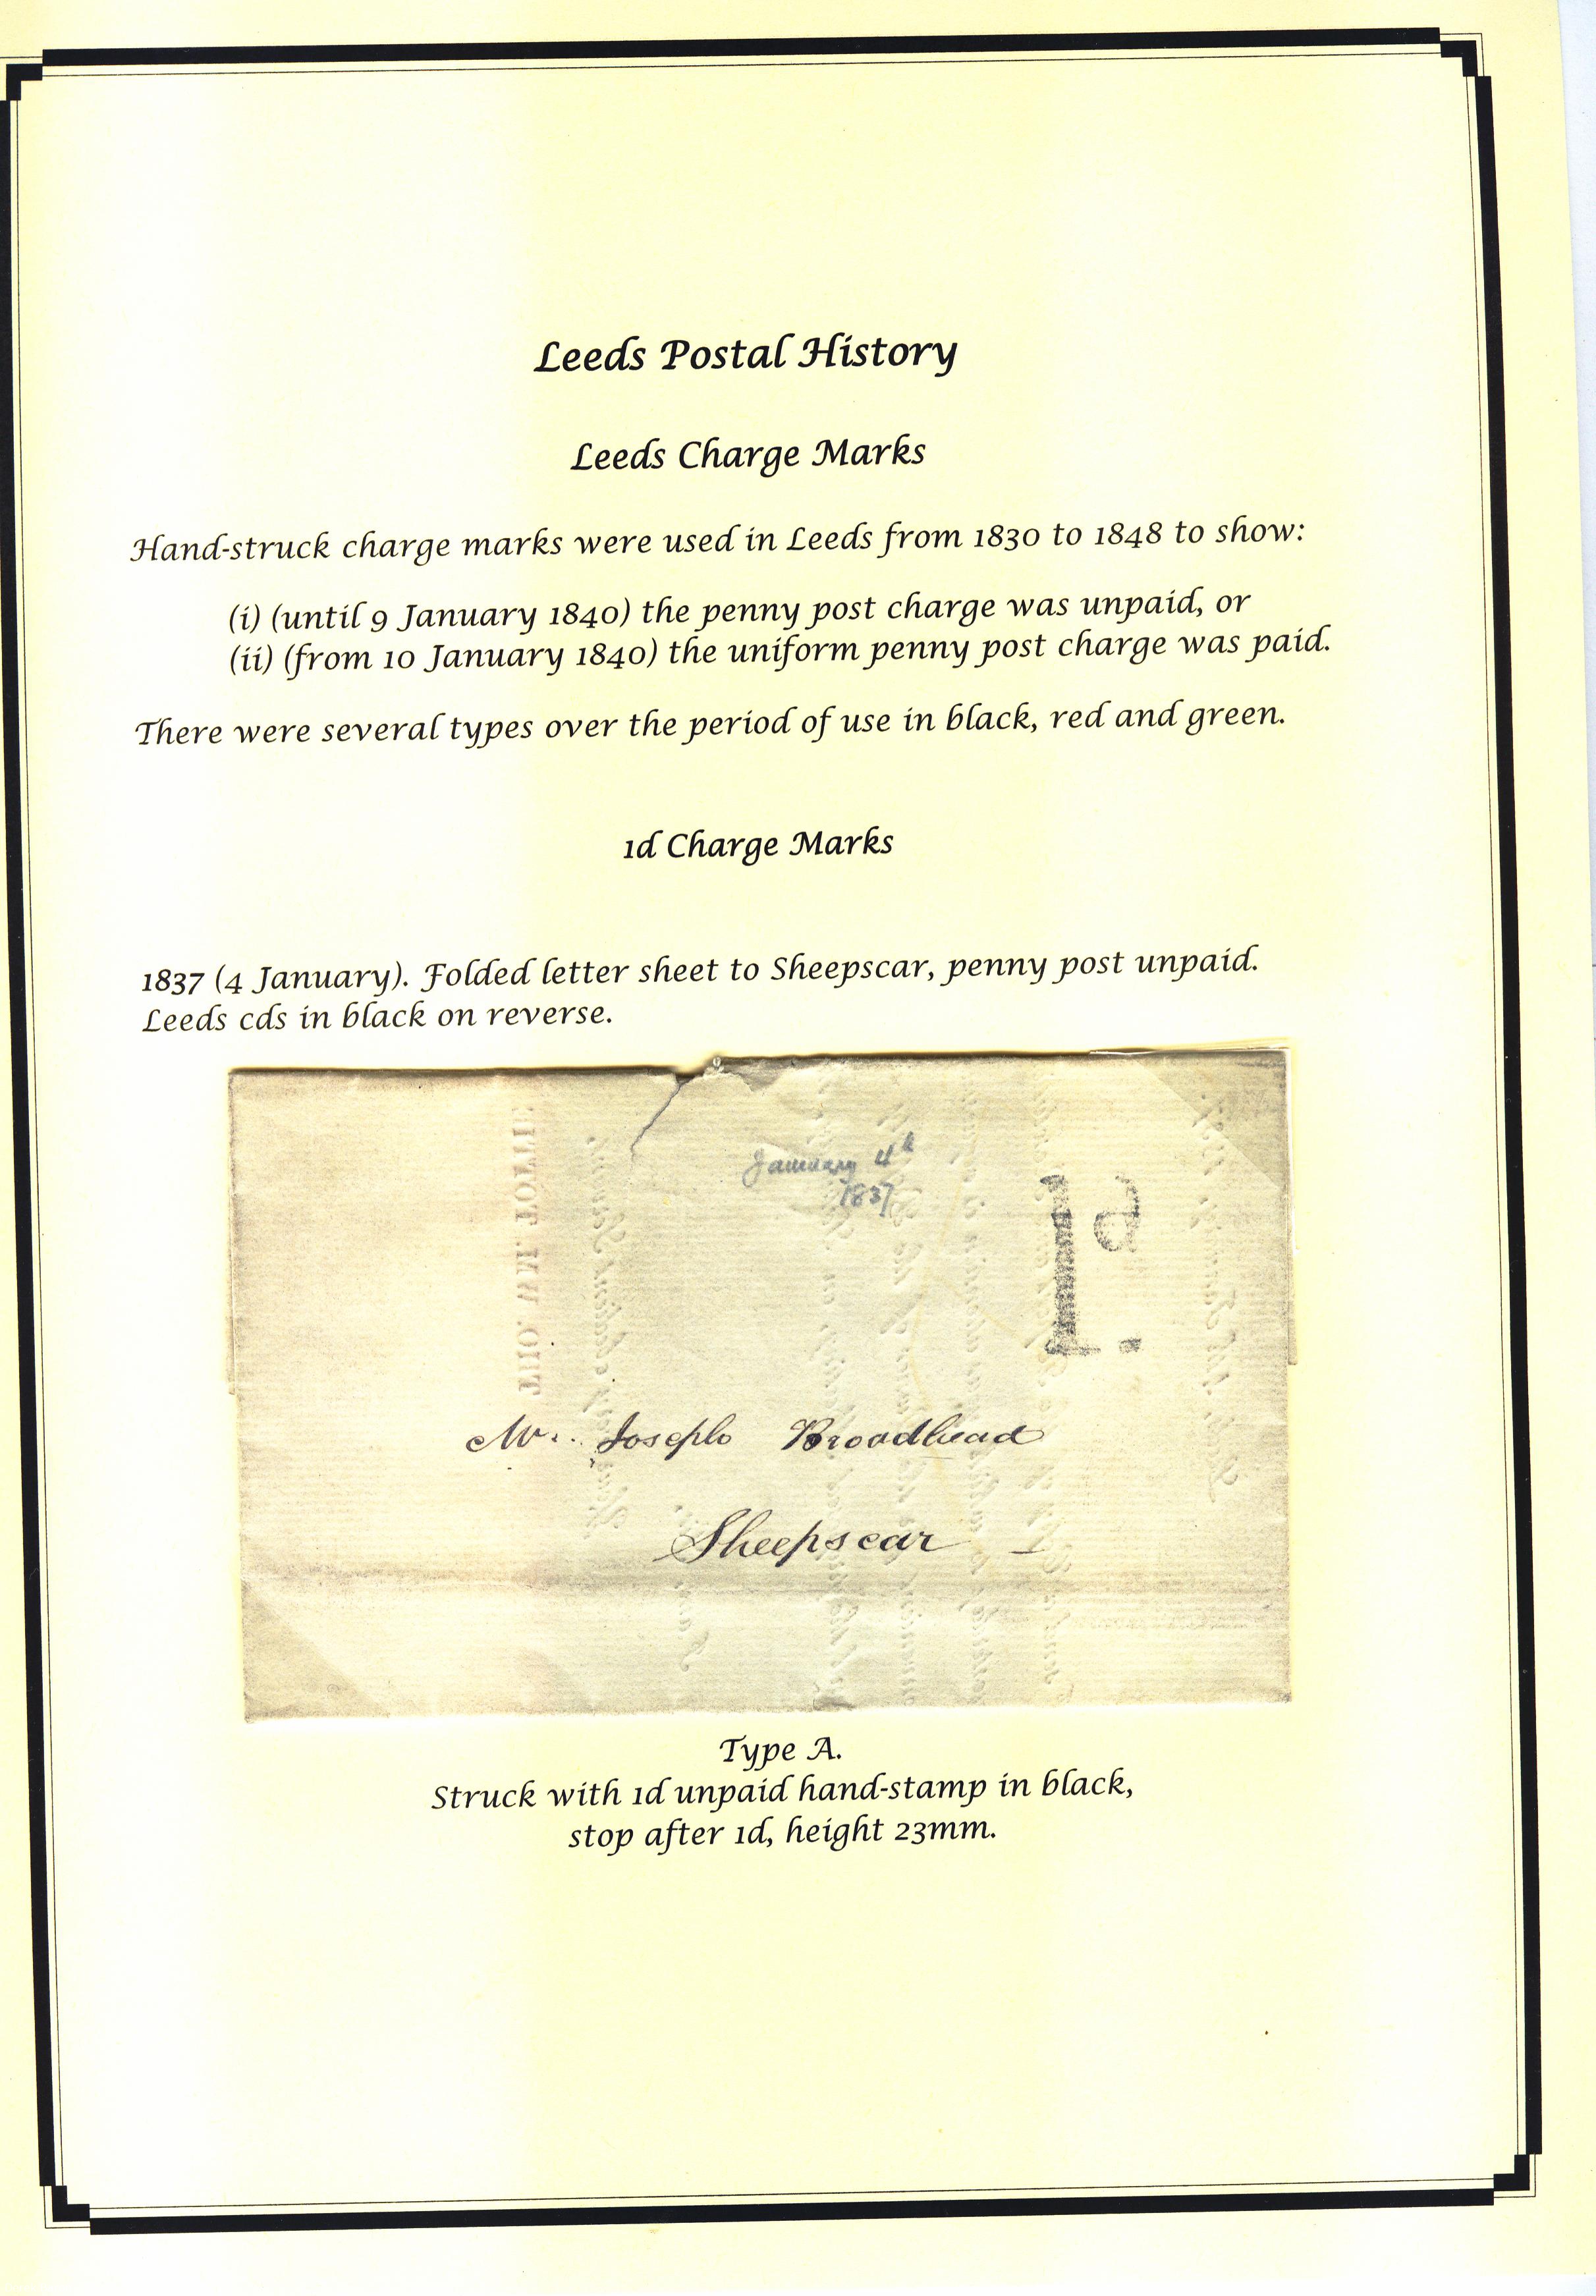 Leeds Postal History
Leeds Charge Marks
Hand-struck charge marks were used in Leeds from 1830 to 1848 to show:
(i) (until 9 January 1840) the penny post charge was unpaid, or
(ii) (from 10 January 1840) the uniform penny post charge was paid.
There were several types over the period of use in black, red and green.
1d Charge Marks
1837 (4 January). Folded letter sheet to Sheepscar, penny post unpaid.
Leeds cds in black on reverse.
January 4th
1837
1d.
Mr. Joseph Broadhead
Sheepscar
Type A.
Struck with 1d unpaid hand-stamp in black,
stop after 1d, height 23mm.